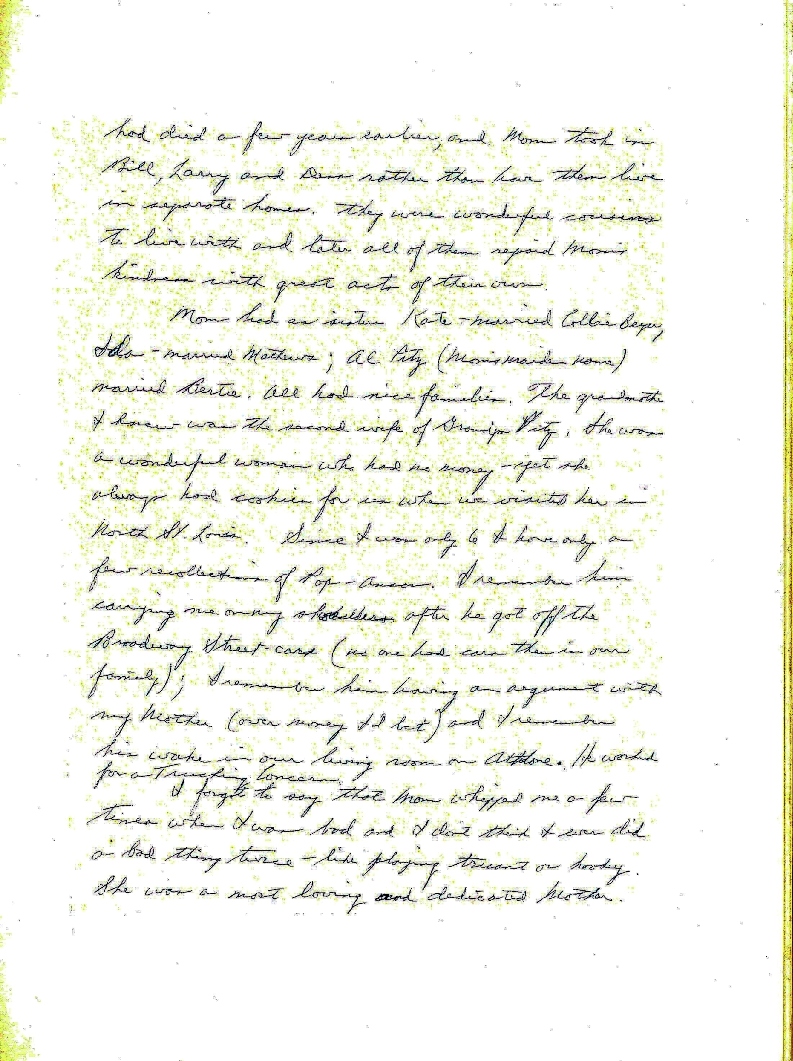 had died a few years earlier, and Mom took in
Bill, Larry and Dean rather than have them live
in separate homes. They were wonderful cousins
to live with and later all of them repaid Mom's
kindness with great acts of their own.
Mom had as sisters Kate - married Collie
Ida - married Mathews; Al Pitz (Mom's maiden name)
married Bertie. All had nice families. The grandmother
I knew was the second wife of Pitz. She was
a wonderful woman who had no money - yet she
always had cookies for us when we visited her in
North St. Louis. Since I was only 6 I have only a
few recollections of Pop - Anson. I remember him
carrying me on my shoulders after he got off the
Broadway Street-cars (no one had cars then in our
family); I remember him having an argument with
my Mother (over money I'd bet) and I remember
his wake in our living room on. He worked
for a Trucking Concern.
I forgot to say that Mom whipped me a few
times when I was bad and I don't think I ever did
a bad thing twice - like playing truant or hooky.
She was a most loving and dedicated Mother.